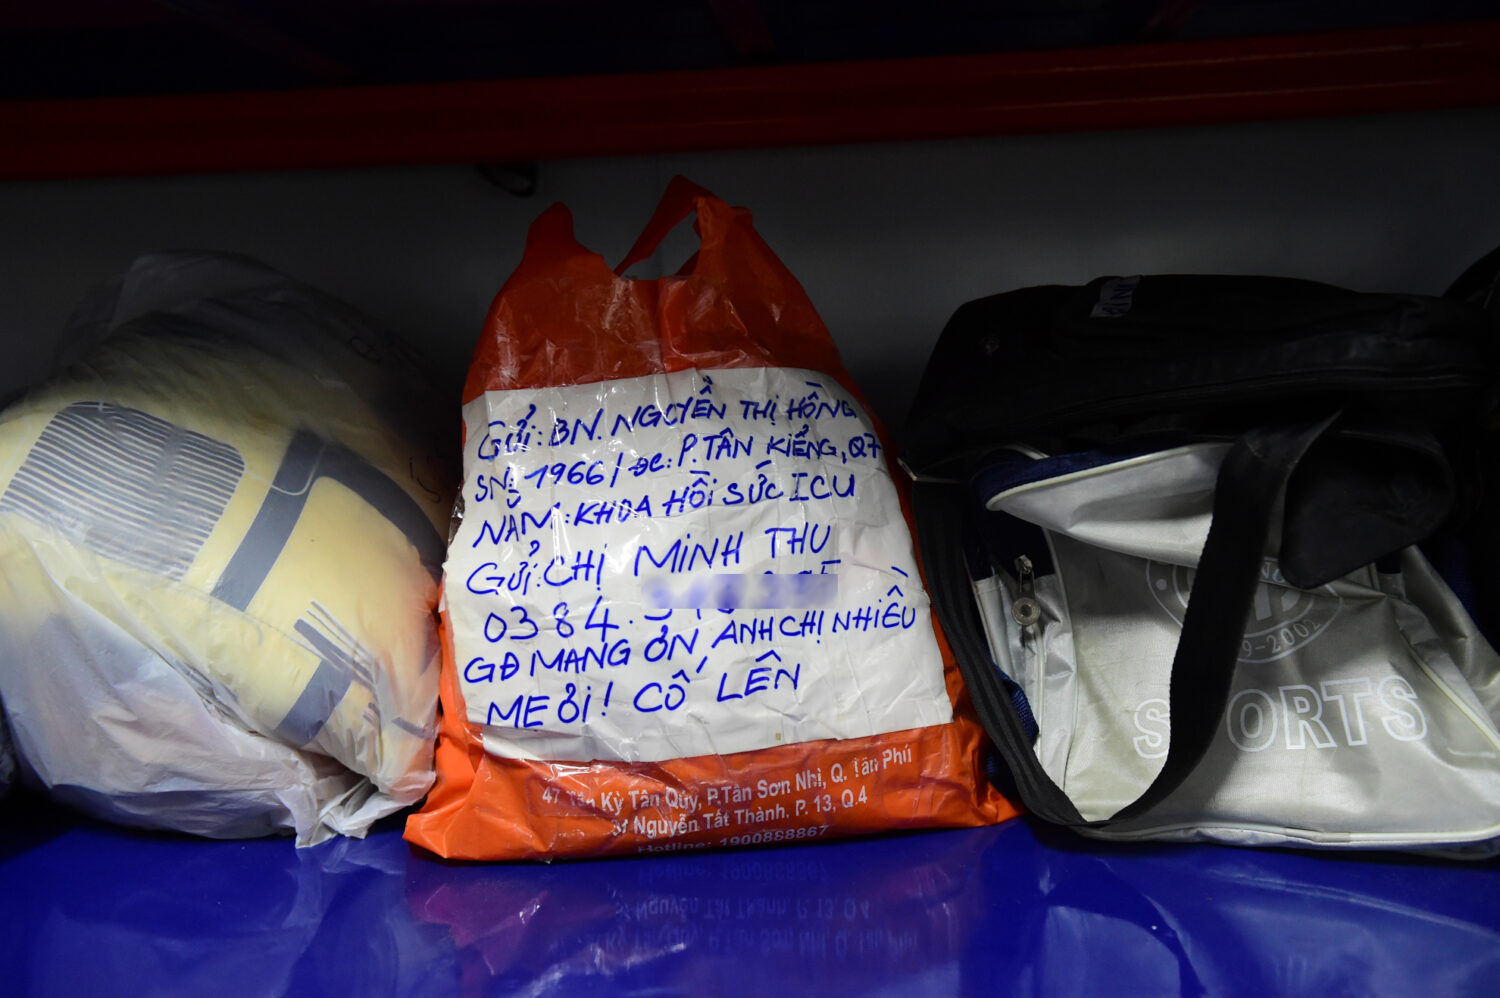 GỬI: BN. NGUYỄN THỊ HỒNG
SN: 1966 / ĐC: P. TÂN KIỂNG, Q7
NẰM: KHOA HỒI SỨC ICU
GỬI: CHỊ MINH THU
0384.
GĐ MANG ƠN ANH CHỊ NHIỀU
MẸ ƠI! CỐ LÊN
47 Tân Kỳ Tân Qúy, P.Tân Sơn Nhì, Q. Tân Phú
Nguyễn Tất Thành. P. 13, Q.4
Hotline: 1900888867
9-2002
SPORTS